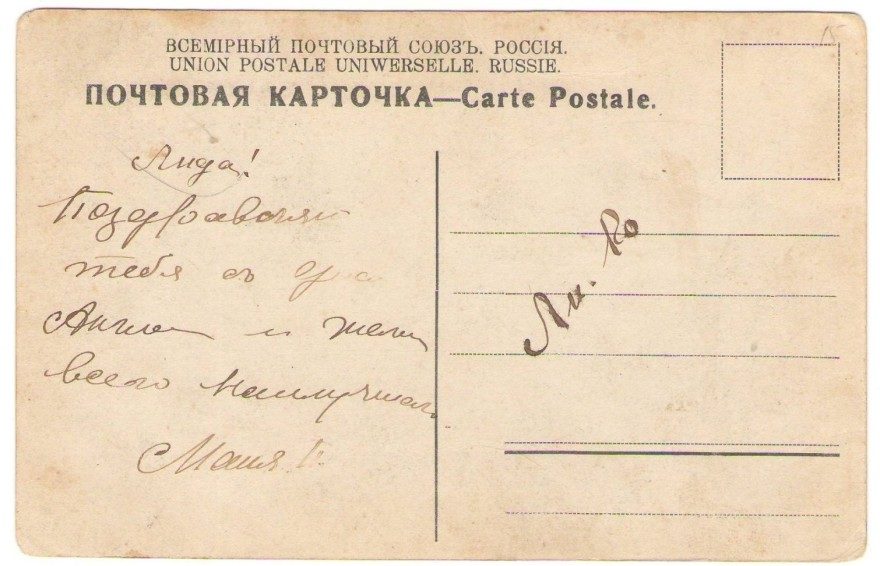 ВСЕМІРНЫЙ ПОЧТОВЫЙ СОЮЗЪ. РОССІЯ.
UNION POSTALE UNIWERSELLE. RUSSIE.
ПОЧТОВАЯ КАРТОЧКА—Carte Postale.
Лида!
Поздравляю
тебя съ
и
всего наилучшаго
Маня
Ли. Ко